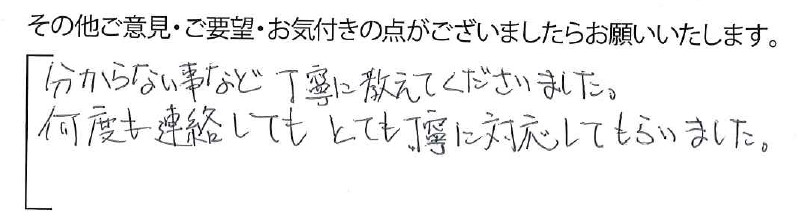 その他ご意見・ご要望・お気付きの点がございましたらお願いいたします。
分からない事など 丁寧に教えてくださいました。
何度も連絡しても とても丁寧に対応してもらいました。